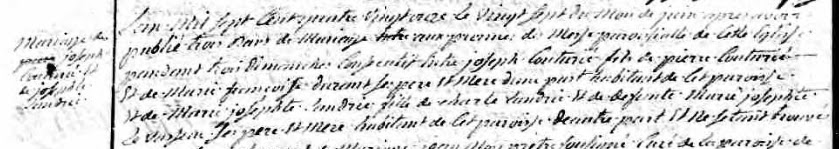 Mariage de
joseph
Couturié Et
de josephte
Landrie
L'an Mil sept Cent quatre Vingt onze le Vingt sept du Mois de juin apres avoir
publié trois Bans de Mariage aux prones de Messe paroissialle de Cette Eglise
pendant trois Dimanches Consecutif Entre joseph Couturié fils de pierre Couturié
Et de Marie francoise durant ses pere Et Mere d'une part habitant de Cet paroisse
Et de Marie josephte Landrie fille de charle Landrie Et de defunte Marie josephte
le Vasseur Ses pere Et Mere habitant de Cet paroisse d'autre part Et Ne setant trouvé
Mariage Curé de la paroisse de